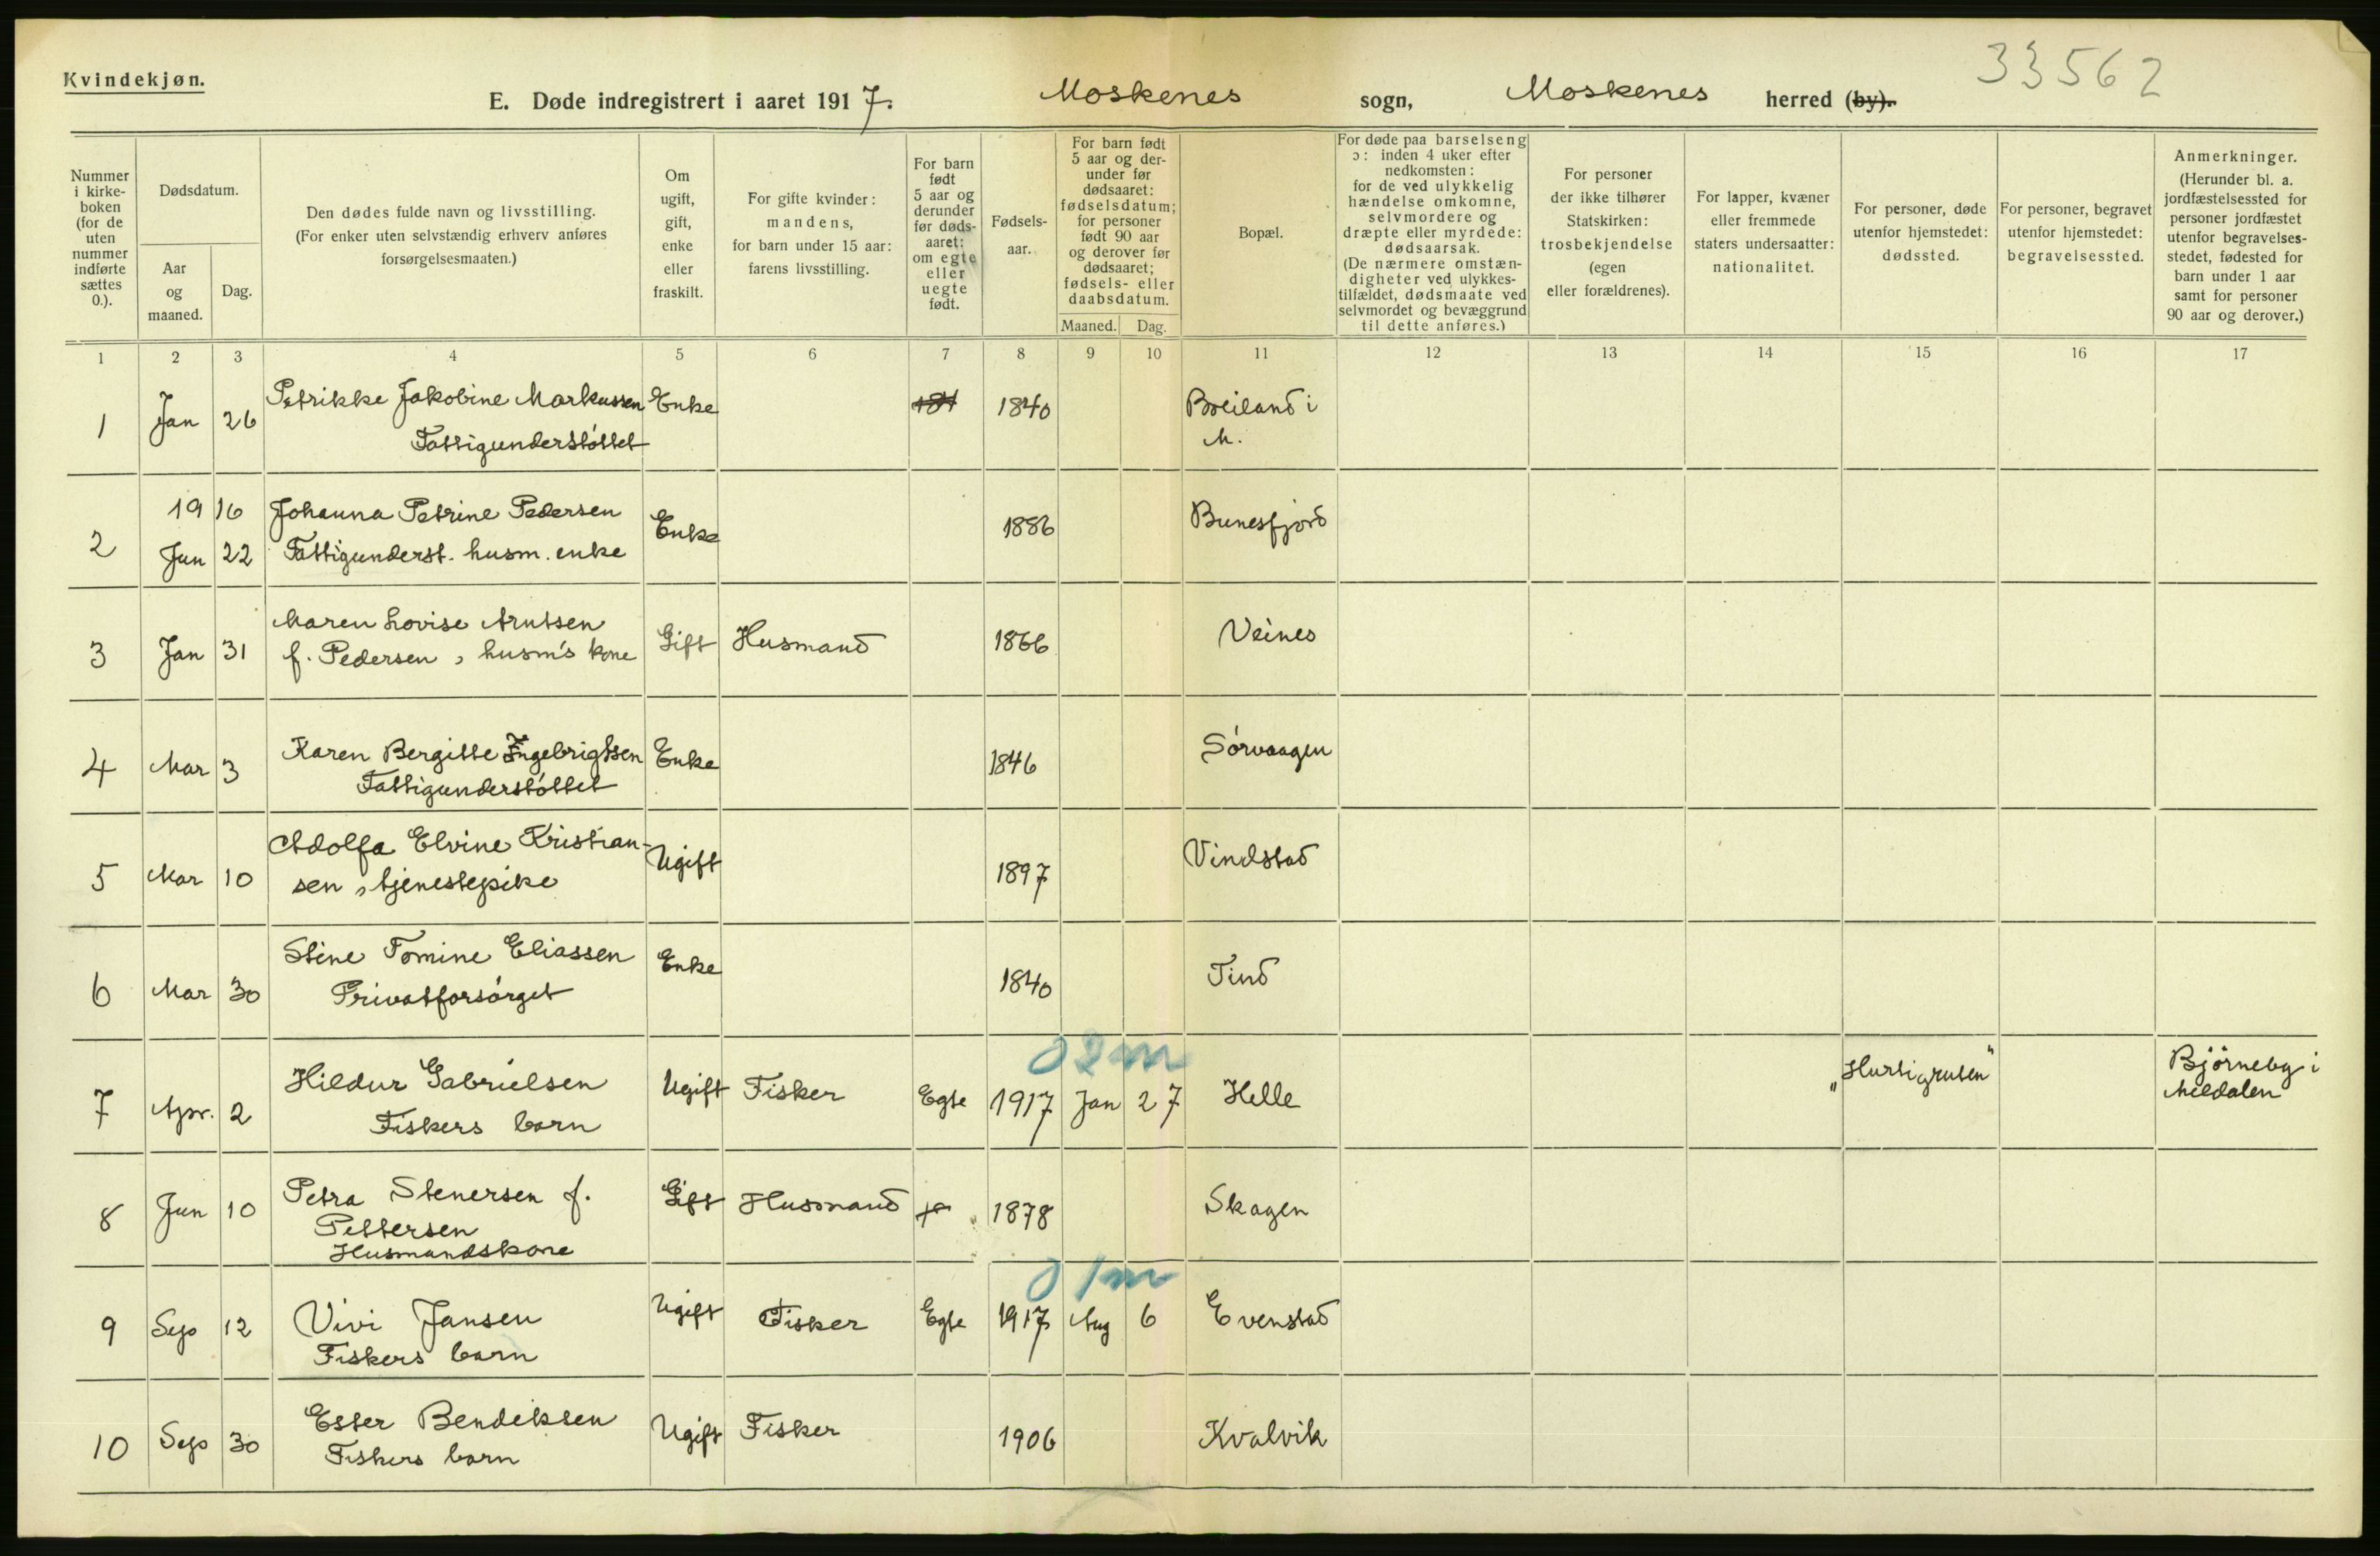 Kvindekjøn.
33562
E. Døde indregistrert i aaret 1917. Moskenes sogn, Moskenes herred (by).
Nummer i kirkeboken (for de uten nummer indførte sættes 0.).
Dødsdatum.
Aar og maaned.
Dag.
Den dødes fulde navn og livsstilling.
(For enker uten selvstændig erhverv anføres
forsørgelsesmaaten.)
Om ugift, gift, enke eller fraskilt.
For gifte kvinder:
mandens,
for barn under 15 aar:
farens livsstilling.
For barn født 5 aar og derunder før dødsaaret: om egte eller uegte født.
Fødselsaar.
For barn født 5 aar og derunder før dødsaaret: fødselsdatum; for personer født 90 aar og derover før dødsaaret; fødsels- eller daabsdatum.
Maaned. Dag.
Bopæl.
For døde paa barselseng
ɔ: inden 4 uker efter
nedkomsten:
for de ved ulykkelig
hændelse omkomne,
selvmordere og
dræpte eller myrdede:
dødsaarsak.
(De nærmere omstæn-
digheter ved ulykkes-
tilfældet, dødsmaate ved
selvmordet og bevæggrund
til dette anføres.)
For personer
der ikke tilhører
Statskirken:
trosbekjendelse
(egen
eller forældrenes).
For lapper, kvæner
eller fremmede
staters undersaatter:
nationalitet.
For personer, døde
utenfor hjemstedet:
dødssted.
For personer, begravet
utenfor hjemstedet:
begravelsessted.
Anmerkninger.
(Herunder bl. a.
jordfæstelsessted for
personer jordfæstet
utenfor begravelses-
stedet, fødested for
barn under 1 aar
samt for personer
90 aar og derover.)
1 2 3 4 5 6 7 8 9 10 11 12 13 14 15 16 17
1 Jan 26 Petrikke Jakobine Markussen Enke 184 1840 Breiland i
Fattigunderstøttet M.
1916 Johanna Petrine Pedersen Enke 1886 Bunesfjord
2 Jun 22 Fattigunderst. husm. enke
Maren Lovise Arntsen
3 Jan 31 f. Pedersen, husm's kone Gift Husmand 1866 Veines
4 Mar 3 Karen Bergitte Ingebrigtsen Enke 1846 Sørvaagen
Fattigunderstøttet
Adolfa Elvine Kristian-
5 Mar 10 sen, tjenestepike Ugift 1897 Vindstad
Stine Tomine Eliassen Enke
6 Mar 30 Privatforsørget 1840 Tind
02m
7 Apr. 2 Hildur Gabrielsen Ugift Fisker Egte 1917 Jan 27 Helle "Hurtigruten" Bjørneby i
Fiskers barn Meldalen
8 Jun 10 Petra Stenersen f. Gift Husmand 1878 Skagen
Pettersen
Husmandskone
01m
9 Sep 12 Vivi Jansen Ugift Fisker Egte 1917 Aug 6 Evenstad
Fiskers barn
10 Sep 30 Ester Bendiksen Ugift Fisker 1906 Kvalvik
Fiskers barn